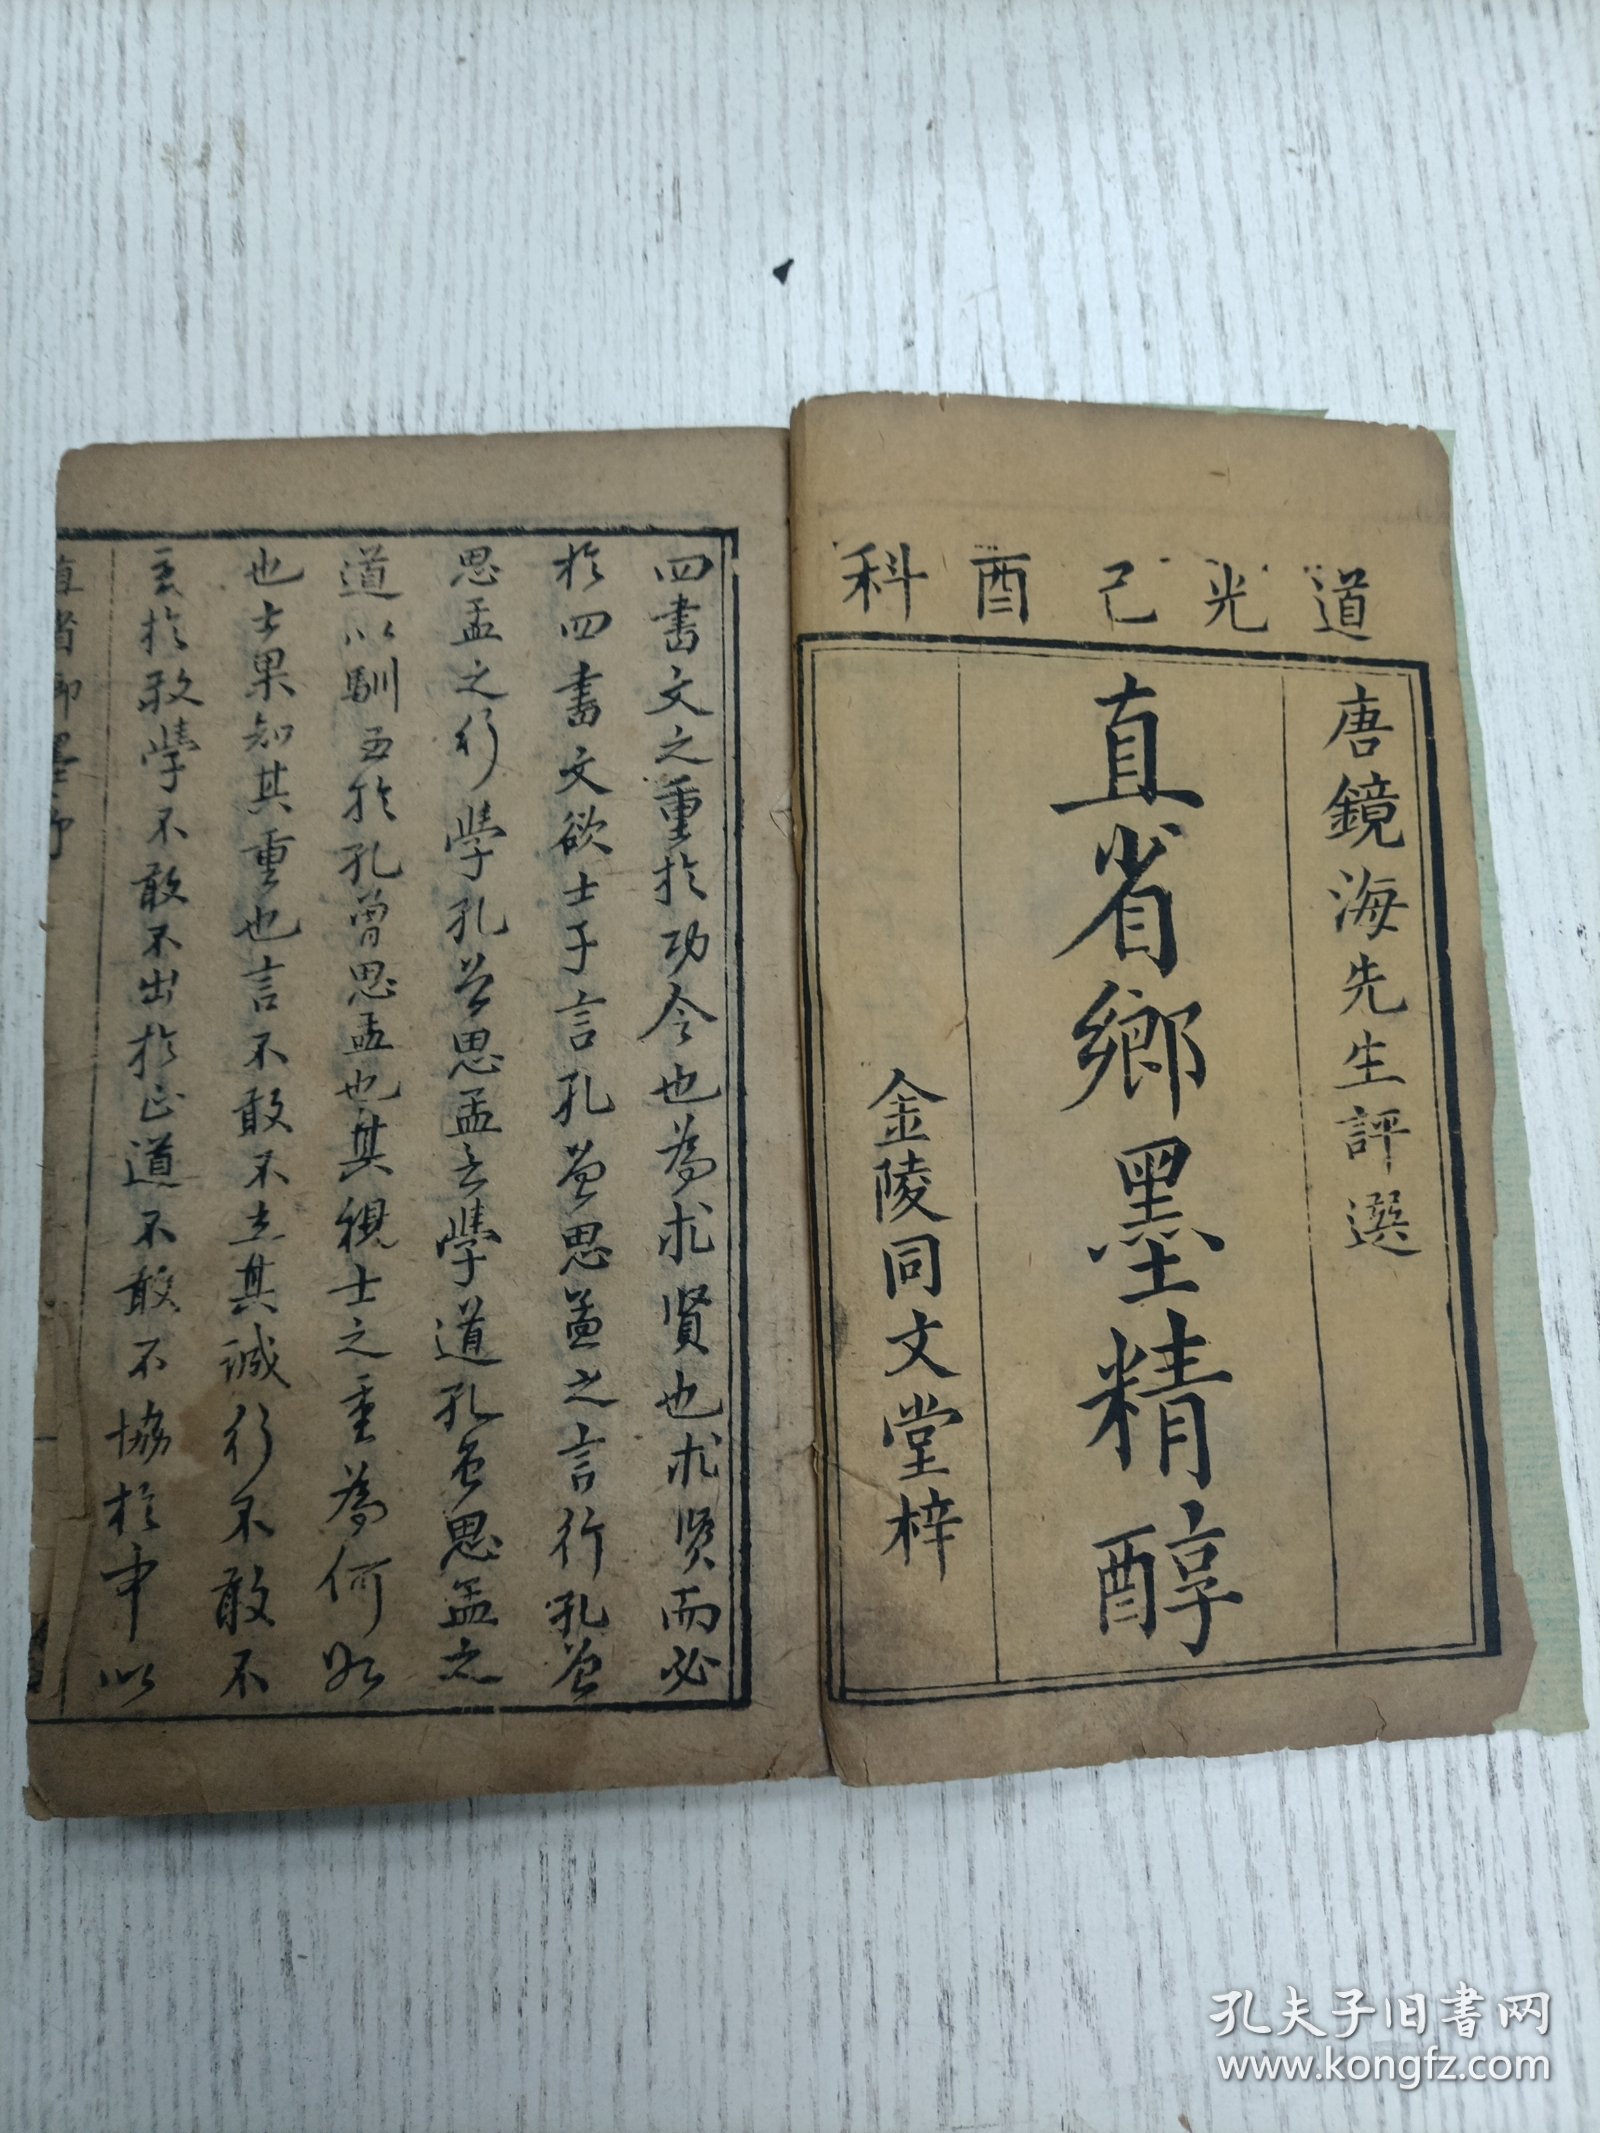 道光己酉科
唐鏡海先生評選
直省鄉墨精醇
金陵同文堂梓
四書文之重於功令也為求賢也求賢而必
於四書文欲士子言孔曾思孟之言行孔曾
思孟之行學孔曾思孟之學道孔曾思孟之
道以馴至於孔曾思孟也其視士之重為何如
也士果知其重也言不敢不立其誠行不敢不
至於敬學不敢不出於正道不敢不協於中以
直省鄉墨
孔夫子旧书网
www.kongfz.com